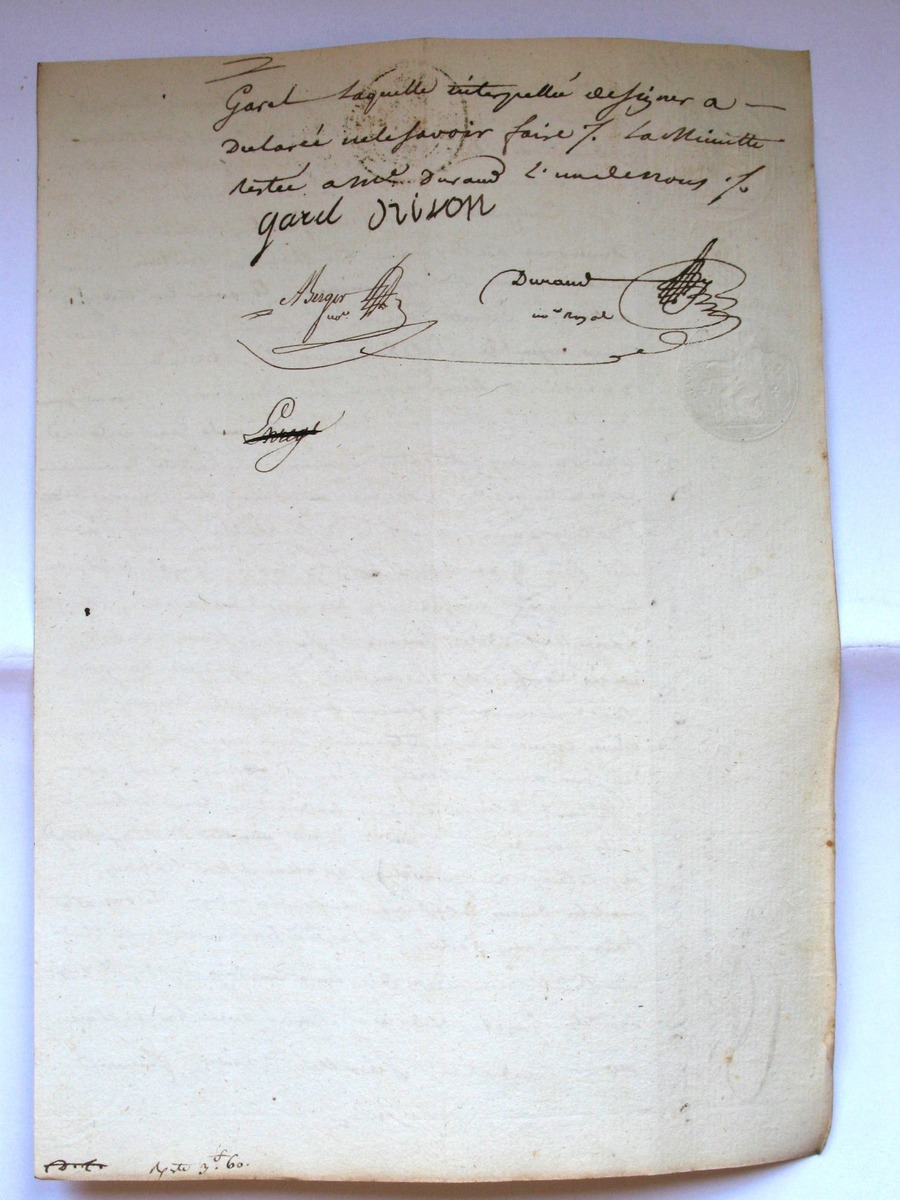 Garel laquelle interpellée de signer a
Declarée ne le savoir faire /. La Minutte
Restée a Me. Durand L'un de nous ./.
garel
ABerger
nore.
Durand
nore Royal
Enreg
Reste 60.